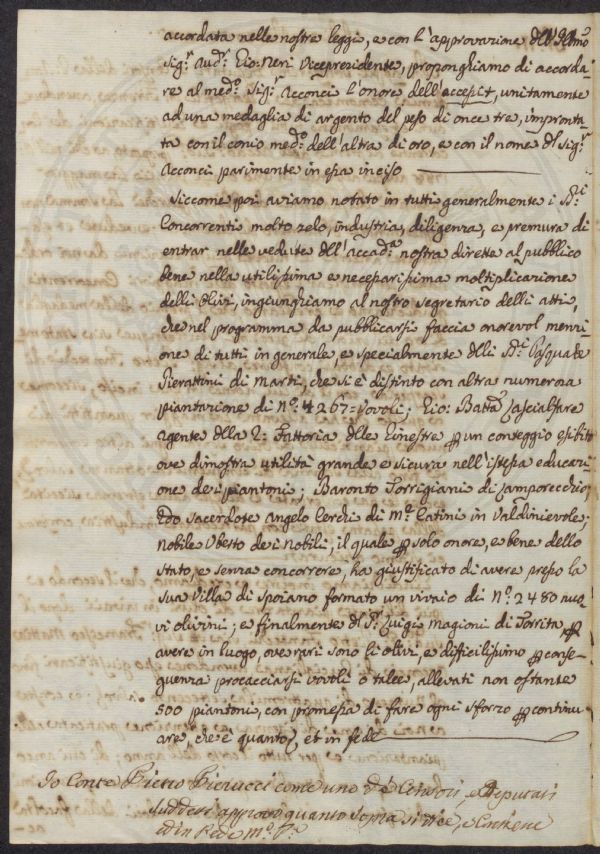 accordata nelle nostre leggi, e con l'approvazione dell'Illmo
Sig.r Aud.r Gio: Neri Vicepresidente, proponghiamo di accorda=
re al med.o Sig.r Acconci l'onore dell'accessit, unitamente
ad una medaglia di argento del peso di once tre, impronta=
ta con il conio med.o dell'altra di oro, e con il nome del Sig.r
Acconci parimente in essa inciso
Siccome poi aviamo notato in tutti generalmente i SS.ri
Concorrenti molto zelo, industria, diligenza, e premura di
entrar nelle vedute dell'accad.a nostra dirette al pubblico
bene nella utilissima e necessarissima moltiplicazione
delli olivi, ingiunghiamo al nostro segretario delli atti,
che nel programma da pubblicarsi faccia onorevol menzi=
one di tutti in generale, e specialmente delli SS.ri Pasquale
Pierattini di Marti, che si è distinto con altra numerosa
piantazione di N.o 4267= Vovoli; Gio: Batta Cascialfare
agente della R: Fattoria delle Ginestre p un conteggio esibito
ove dimostra utilità grande e sicura nell'istessa educazi=
one dei piantoni; Baronto Torrigiani di Lamporecchio
Rdo Sacerdote Angelo Cerchi di M.te Catini in Valdinievole;
Nobile Uberto dei Nobili, il quale p solo onore, e bene dello
Stato, e senza concorrere, ha giustificato di avere presso la
sua Villa di Spoiano formato un vivaio di N.o 2480 nuo=
vi olivini; e finalmente del S.r Luigi Magioni di Torrita p
avere in luogo, ove rari sono li olivi, e difficilissimo p conse=
guenza procacciarsi vovoli o talee, allevati non ostante
500 piantoni, con promessa di fare ogni sforzo p continu=
are, che è quanto, et in fede
Io Conte Pietro Pierucci come uno dei Censori, e Deputati
suddetti approvo quanto sopra si dice, e Contiene
ed in Fede M.o P.a